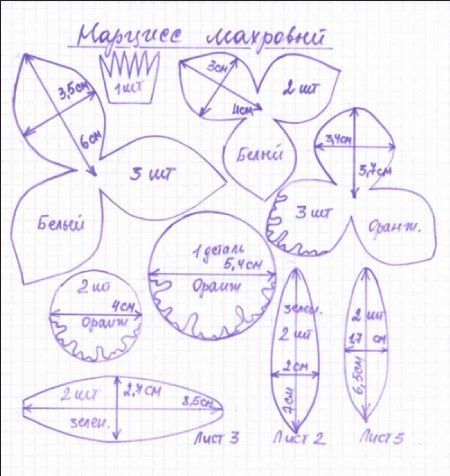 Нарцисс махровый
1 шт
3,5см
6см
3 шт
Белый
3см
4см
2 шт
Белый
3,4см
3,7см
3 шт
Оранж.
1 деталь
5,4см
Оранж
2 шт
4см
Оранж
зелен.
2 шт
2 см
7см
Лист 2
2 шт
1,7 см
6,5см
Лист 5
2 шт
2,7см
8,5см
зелен.
Лист 3